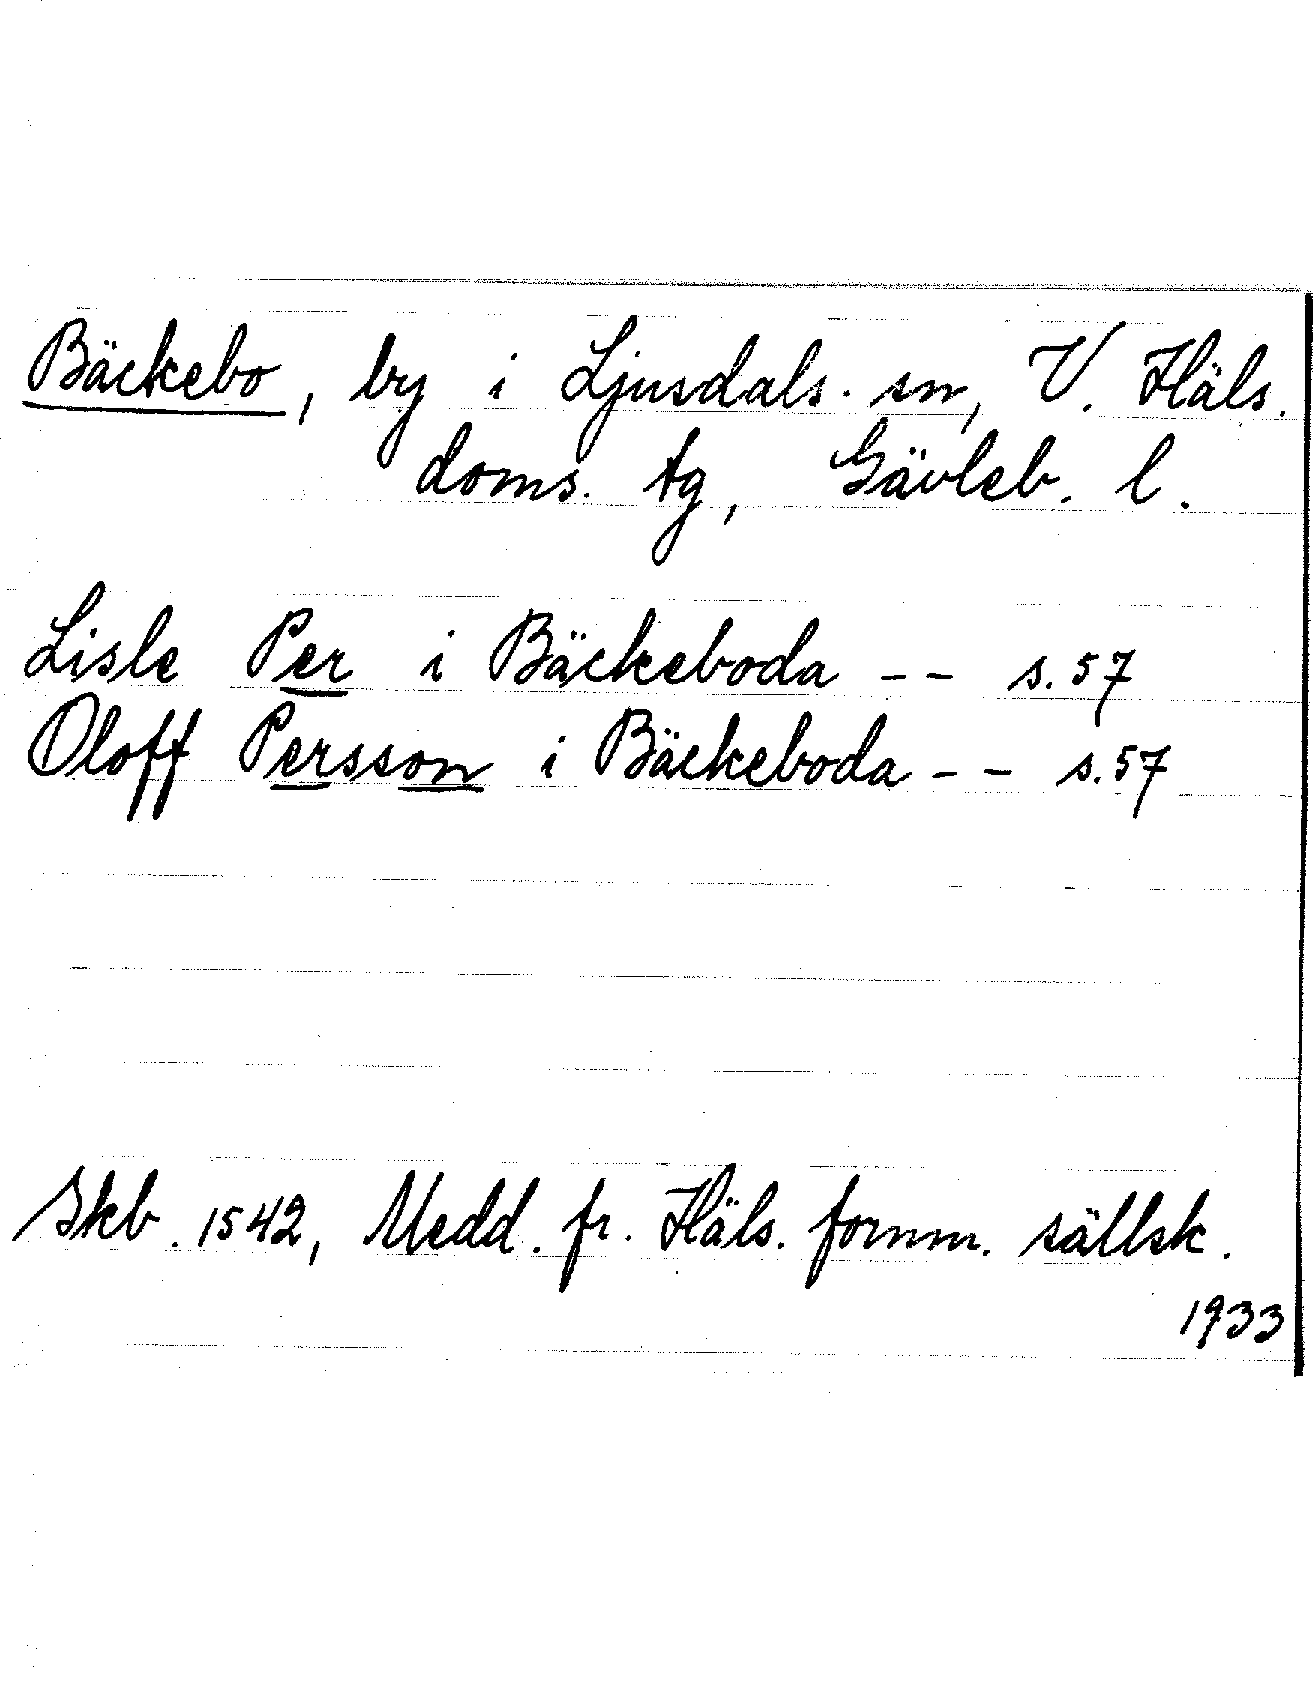 Bäckebo, by i Ljusdals. sn, V. Häls.
doms. tg, Gävleb. l.
Lisle Per i Bäckeboda -- s.57
Oloff Persson i Bäckeboda -- s.57
Skb. 1542, Medd. fr. Häls. fornm. sällsk.
1933